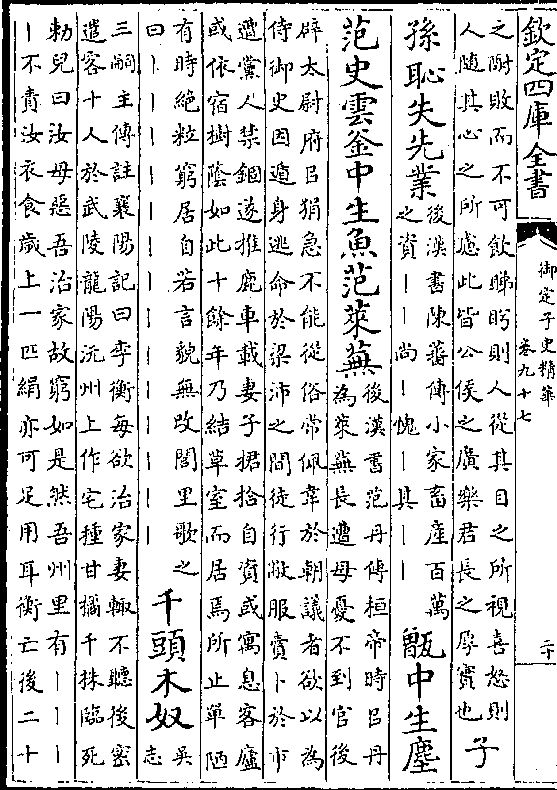 欽定四庫全書
御定子史精華
卷九十七
二十
之酎敗而不可飲睇眄則人從其目之所視喜怒則
人隨其心之所慮此皆公侯之廣樂君長之厚實也
子孫恥失先業
後漢書陳蕃傳小家畜産百萬
之資｜｜尚｜愧｜其｜｜
甑中生塵
范史雲釜中生魚范萊蕪
後漢書范丹傳桓帝時㠯丹
為萊蕪長遭母憂不到官後
辟太尉府㠯狷急不能從俗常佩韋於朝議者欲以為
侍御史因遁身逃命於梁沛之間徒行敝服賣卜於市
遭黨人禁錮遂推鹿車載妻子捃拾自資或寓息客廬
或依宿樹䕃如此十餘年乃結草室而居焉所止單陋
有時絶粒窮居自若言貌無改閭里歌之
曰｜｜｜｜｜｜｜｜｜｜｜｜｜｜
千頭木奴
吳志
三嗣主傳註襄陽記曰李衡每欲治家妻輒不聽後密
遣客十人於武陵龍陽沅州上作宅種甘橘千株臨死
勅兒曰汝母惡吾治家故窮如是然吾州里有｜｜｜
｜不責汝衣食歲上一匹絹亦可足用耳衡亡後二十